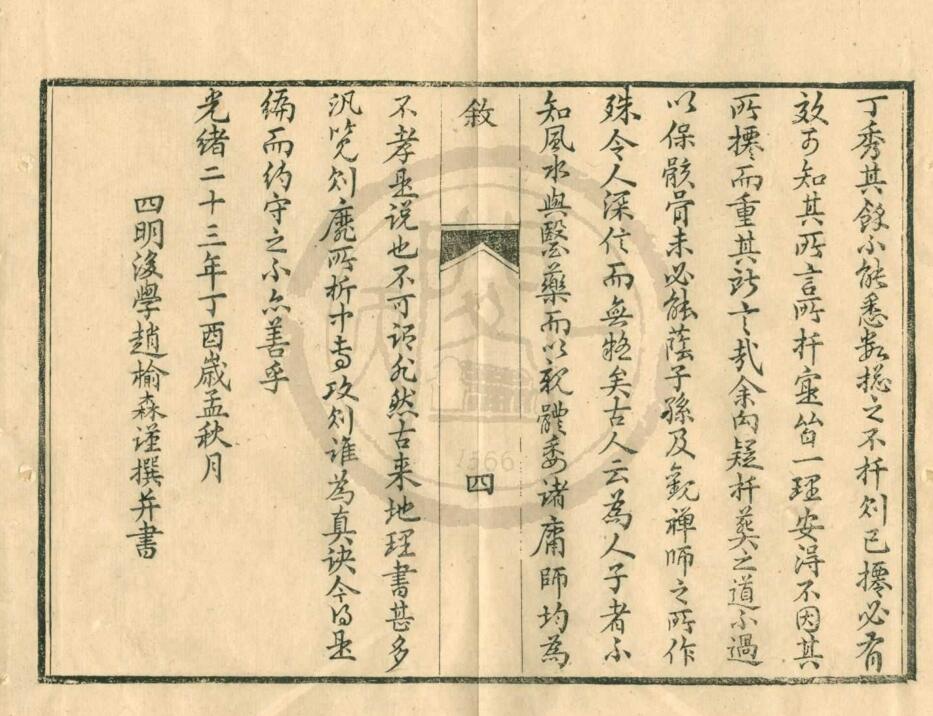 丁秀其餘不能悉數揔之不扦則已擇必有
效可知其所言所扦寔皆一理安得不因其
所擇而重其所言哉余向疑扦葬之道不過
以保骸骨未必能蔭子孫及觀禪師之所作
殊令人深信而無疑矣古人云為人子者不
知風水與醫藥而以親體委諸庸師均為
敘
四
不孝是說也不可謂不然古来地理書甚多
汎覽則靡所折中專攻則誰為真訣今得是
編而約守之不亦善乎
光緒二十三年丁酉歲孟秋月
四明後學趙榆森謹撰并書
1566